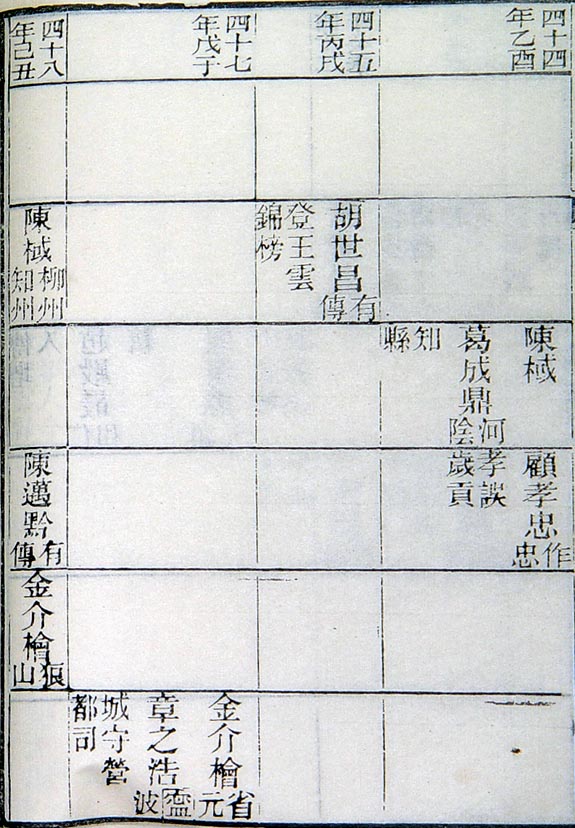 四十四
年乙酉
陳棫
葛成鼎河陰
知縣
顧孝忠作忠
孝誤
歲貢
四十五
年丙戌
胡世昌有傳
登王雲
錦榜
四十七
年戊子
金介檜省元
章之浩波
城守營
都司
四十八
年己丑
陳棫柳州知州
陳邁黔有傳
金介檜狼山